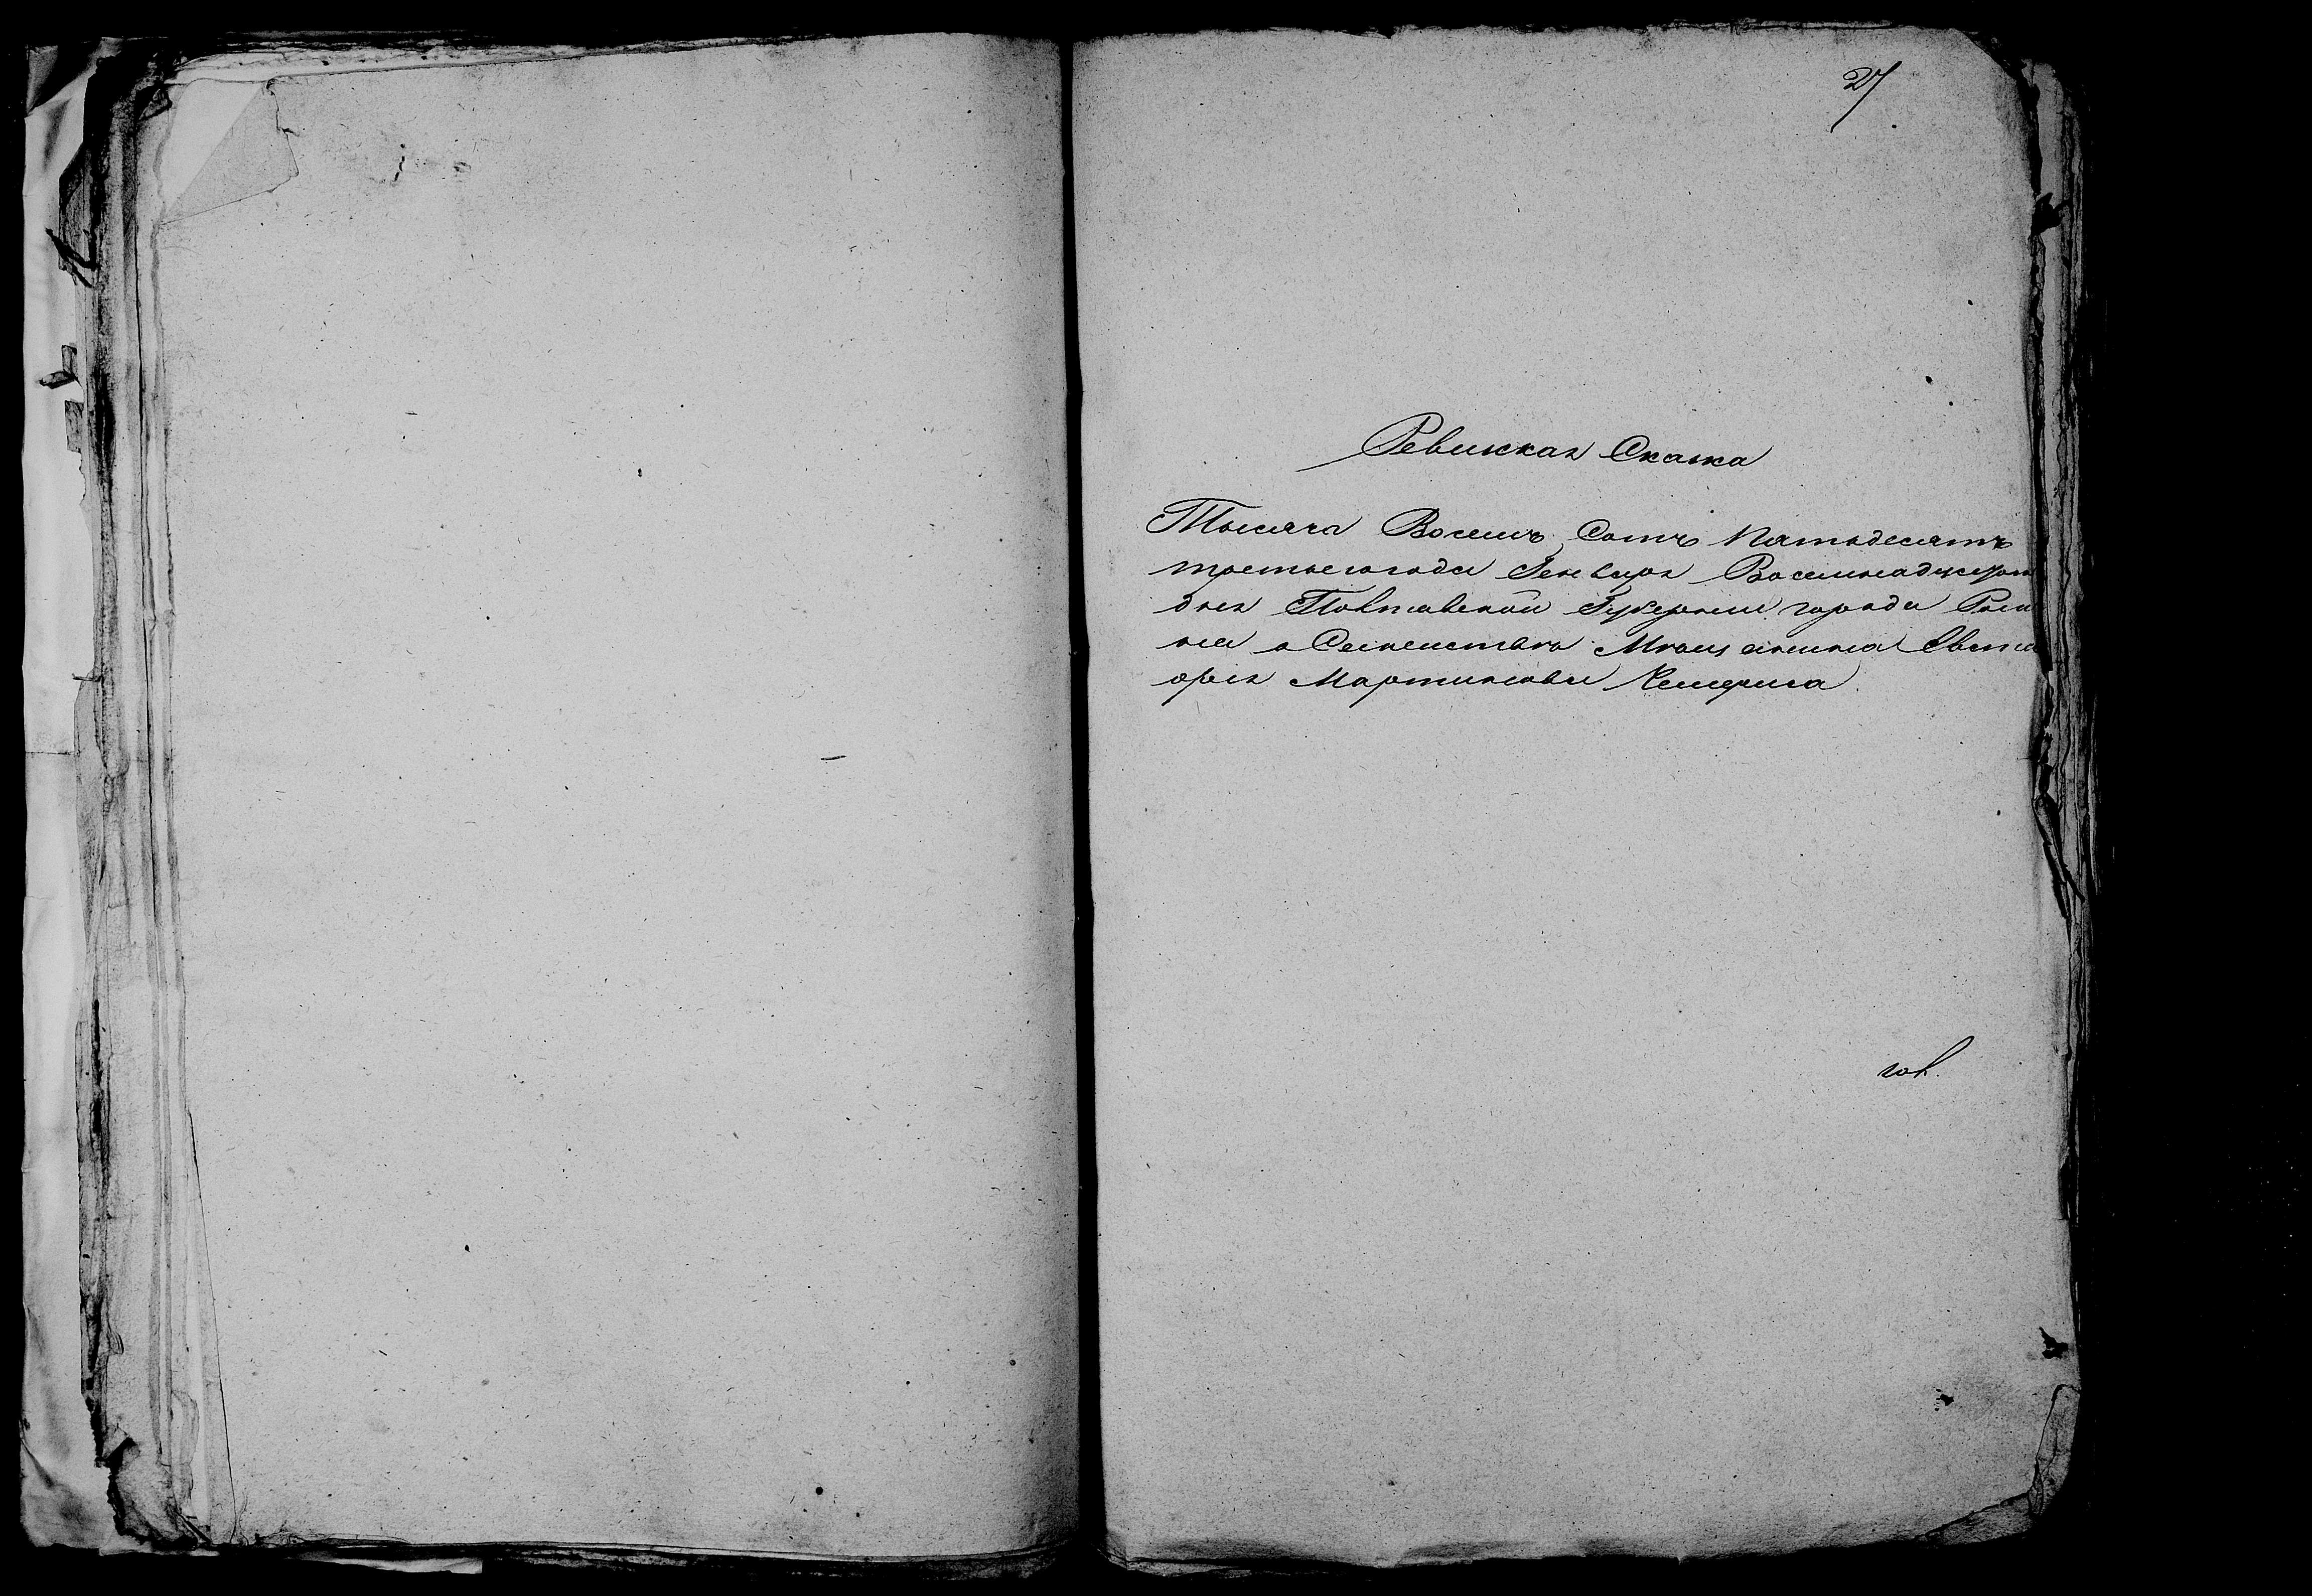 27
Ревижская Сказка
Тысяча Восемъ Сотъ Пятьдесятъ
третьего года Генваря Восемнадцатого
дня Полтавской Губернии города Ром
на о Семействе Мещанина Евста
фия Мартинова